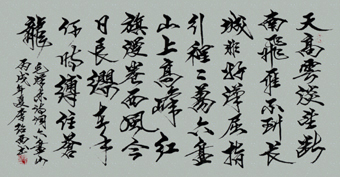 天高雲淡望斷
南飛雁不到長
城非好漢屈指
行程二萬六盤
山上高峰紅
旗漫卷西風今
日長纓在手
何時縛住蒼
龍
毛澤東詞六盘山
丙戌年夏李